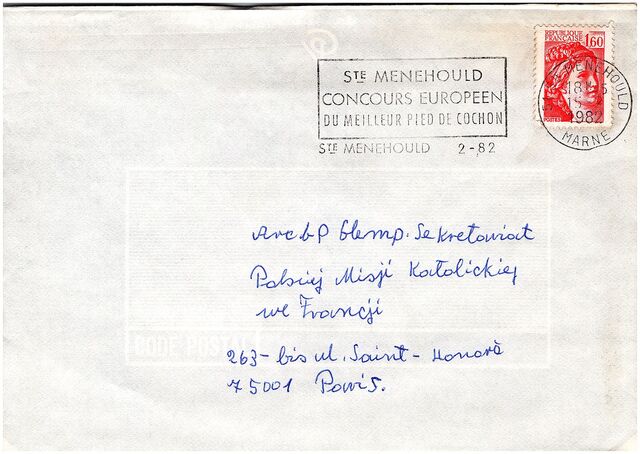 STE MENEHOULD
CONCOURS EUROPEEN
DU MEILLEUR PIED DE COCHON
STE MENEHOULD 2-82
REPUBLIQUE
FRANÇAISE 1,60
POSTES
STE MENEHOULD
18H
1982
MARNE
Arcbp Glemp. Sekretariat
Polskiej Misji Katolickiej
we Francji
263-bis ul. Saint-Honoré
75001 Paris.
CODE POSTAL